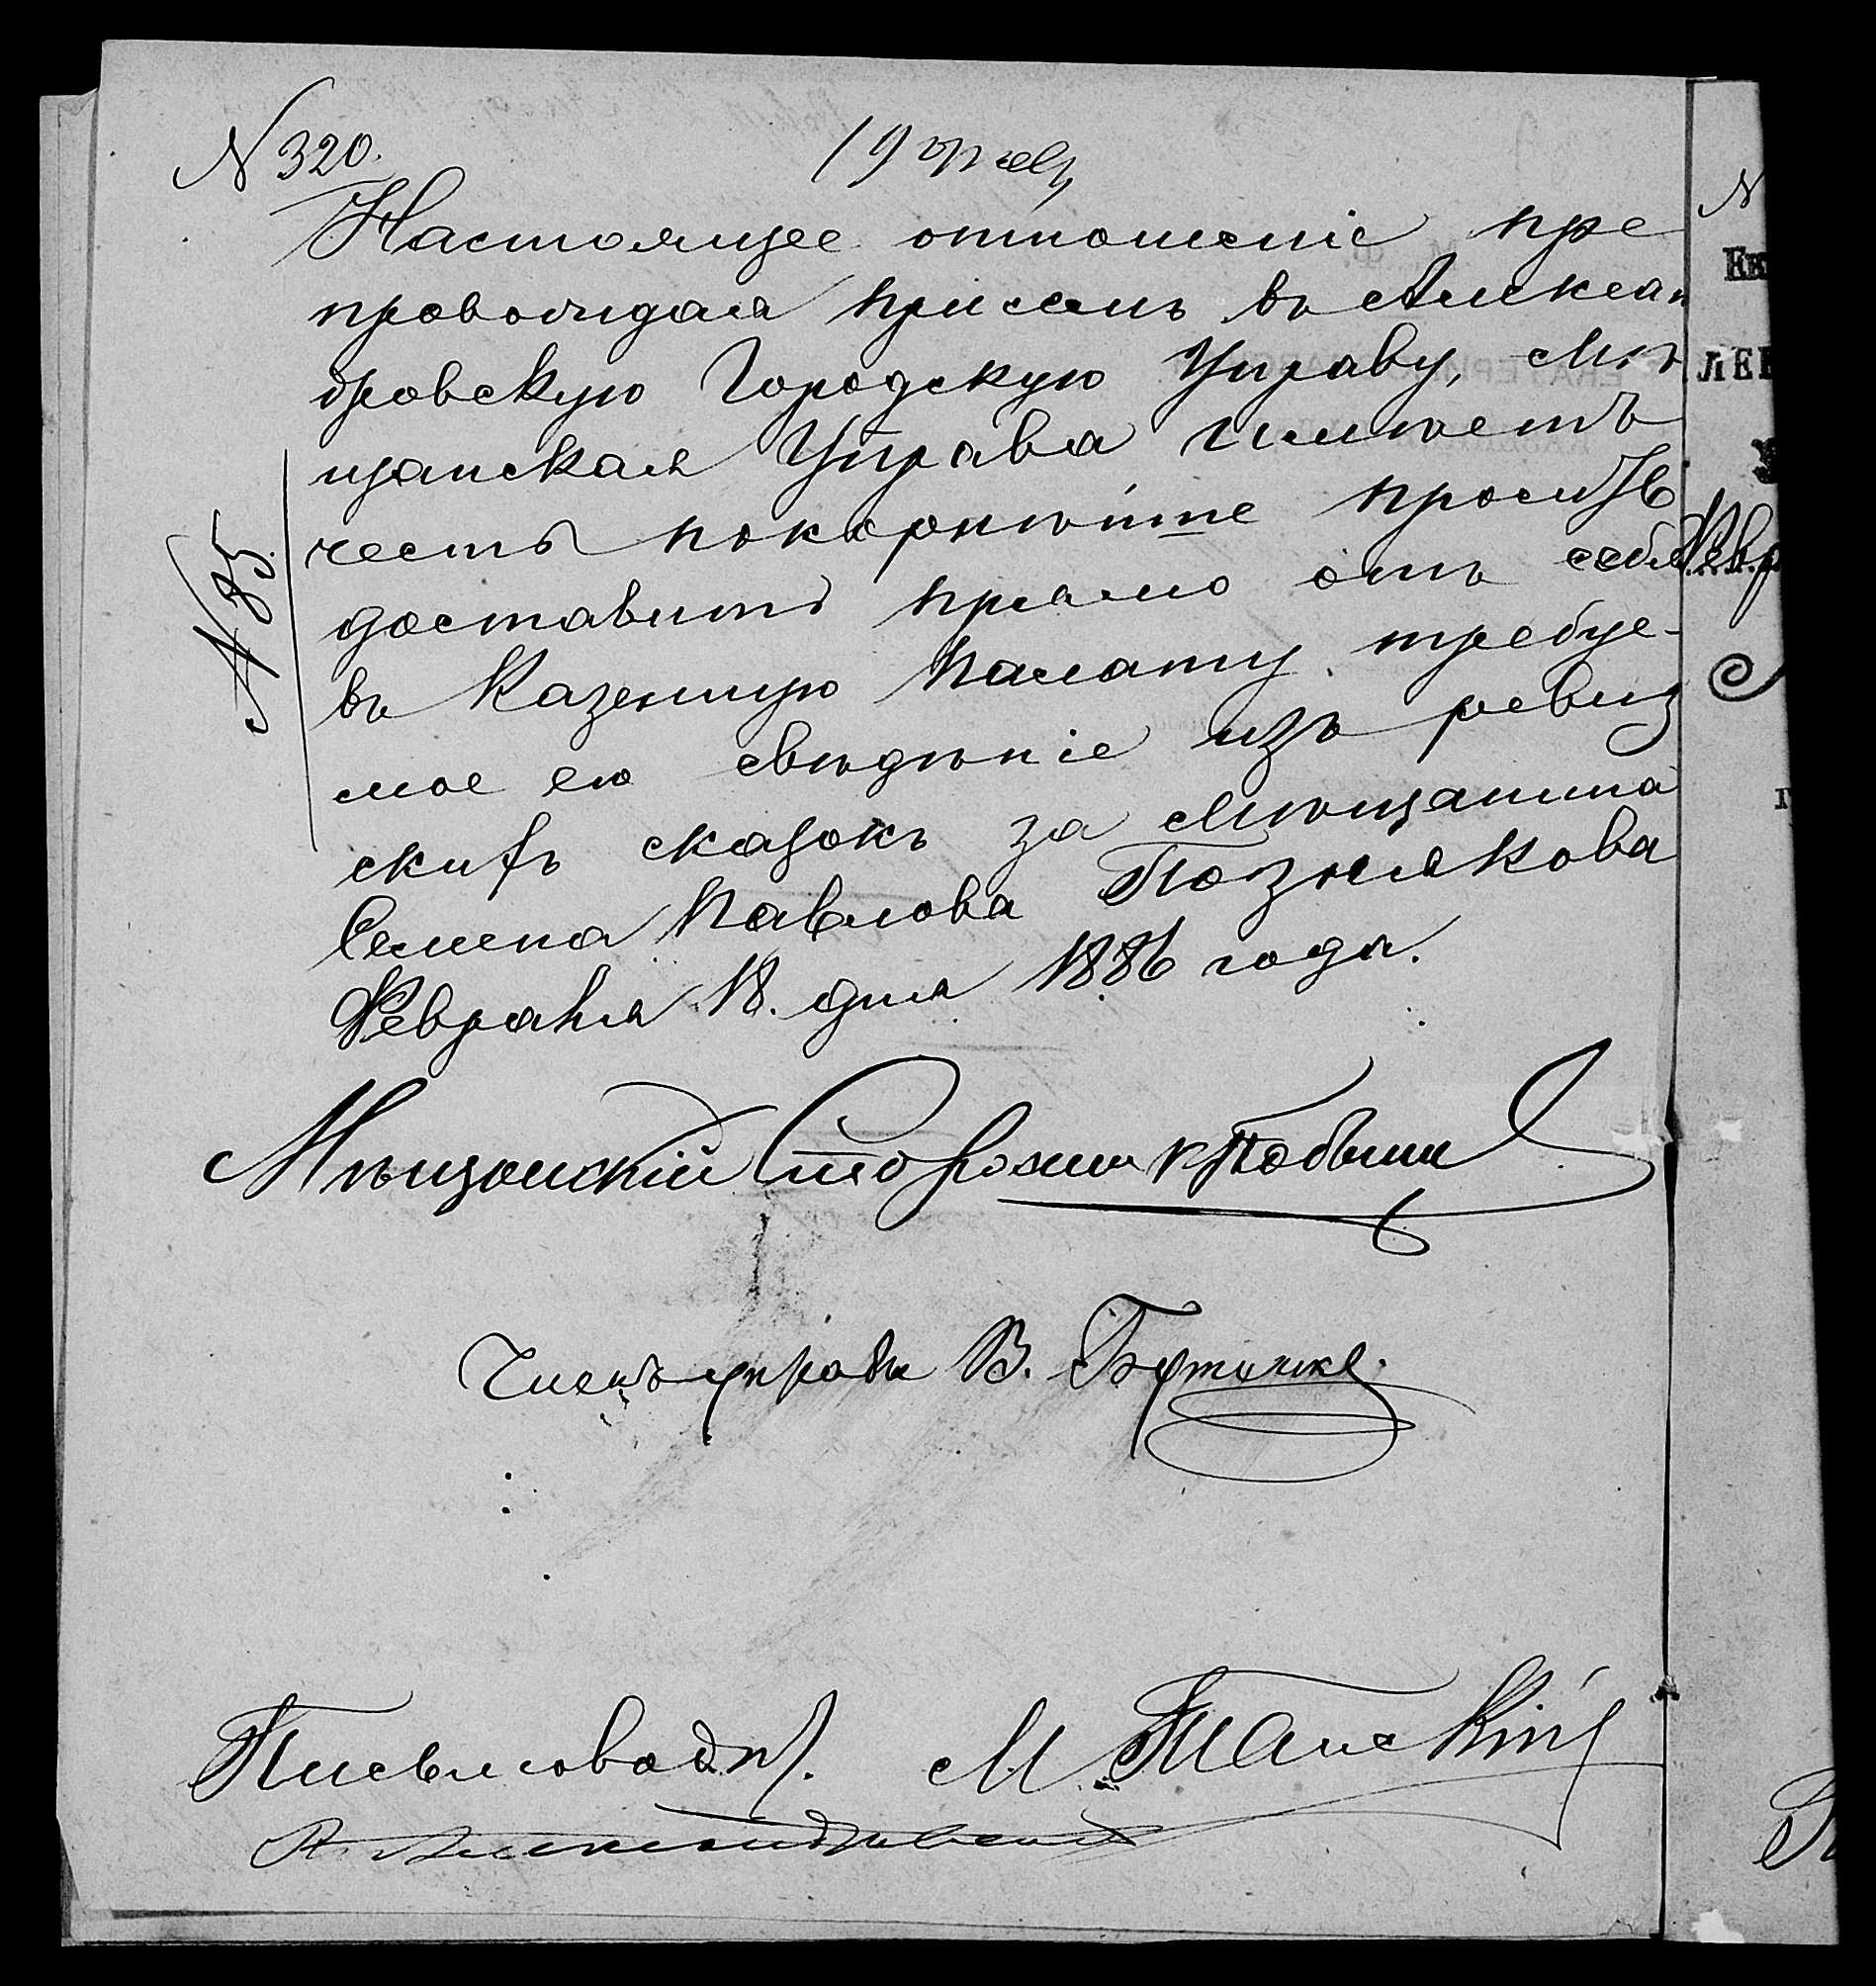 N 320.
19 февр
Настоящее отношеніе пре
провождая присемъ въ Алексан
дровскую Городскую Управу, Мѣ
щанская Управа имѣетъ
честь покорнѣйше просить
доставить прямо отъ себя
въ Казенную Палату требуе-
мое ею свѣдѣніе изъ ревиз
скихъ сказокъ за Мѣщанина
Семена Павлова Познякова
Февраля 18. дня 1886 года.
N 85.
Мѣщанскій Староста
Членъ управы В.
Письмовод. М.
г. Александровскъ
N
Ек
ЛЕ
Февр